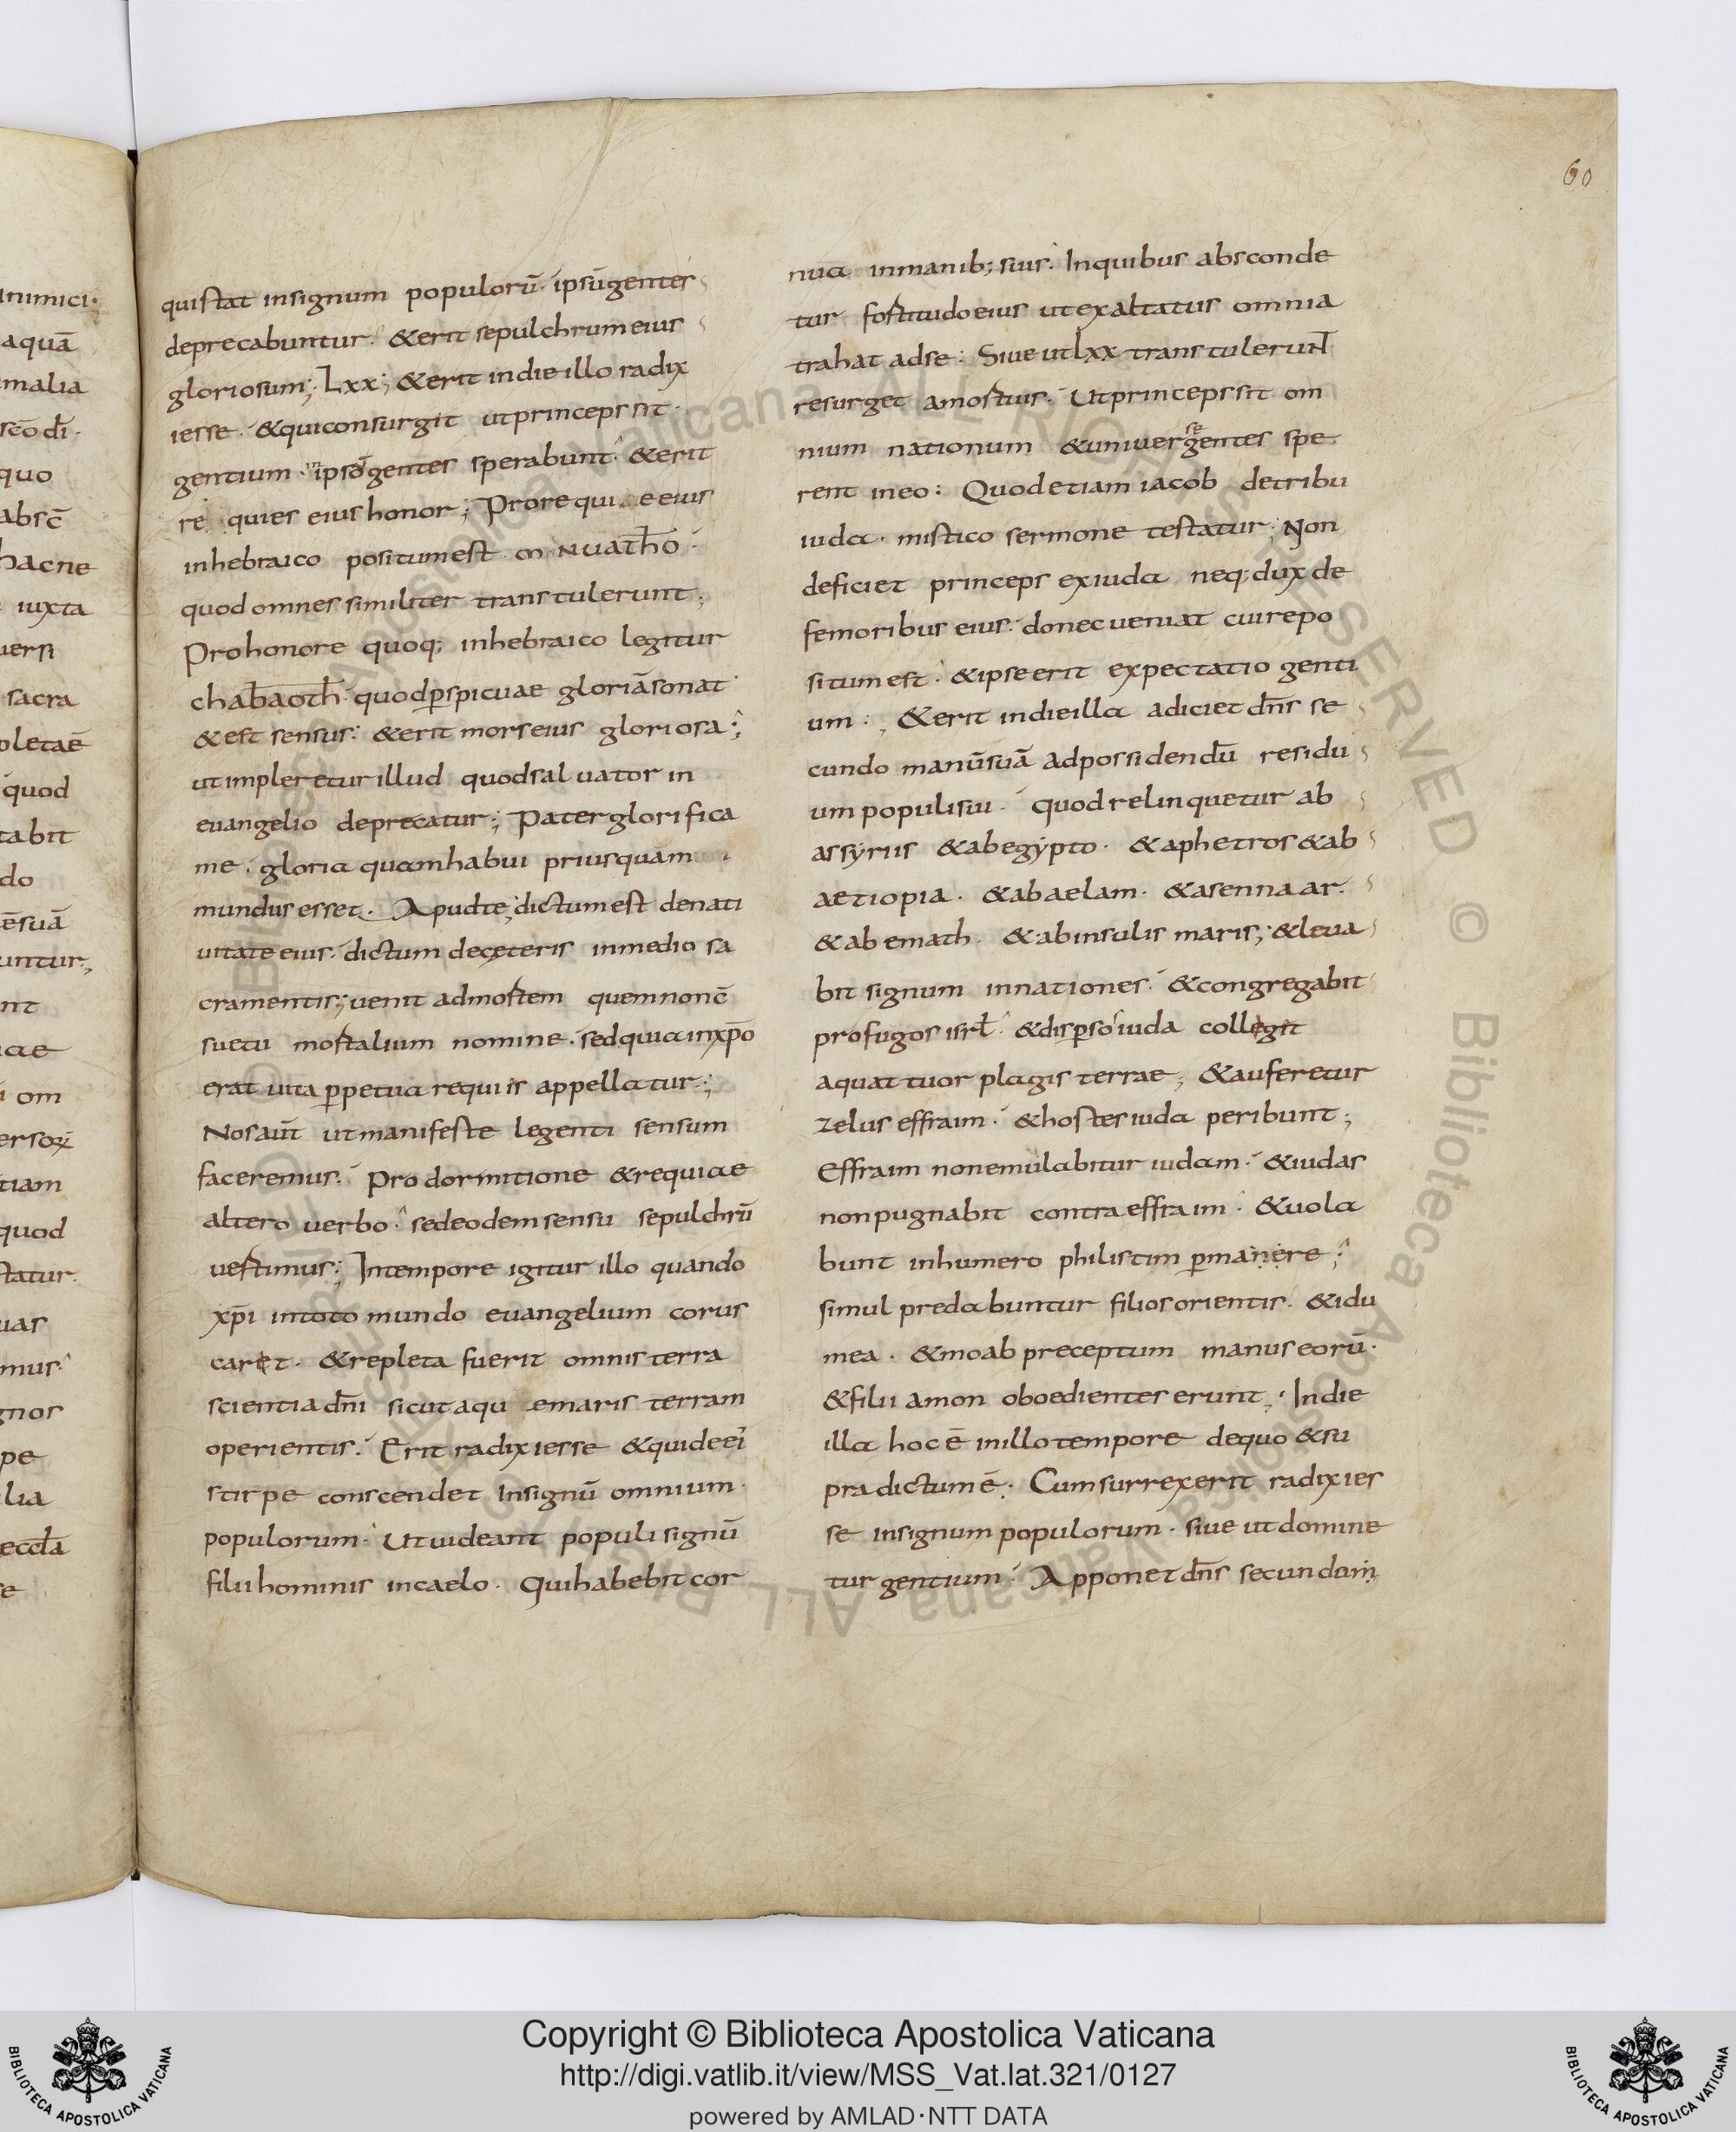 60
inimici·
aquā
malia
scōdī·
quo
abscē
hacne
iuxta
uersi
sacra
pletaē
quod
tabit
do
ēsuā
untur;
nt
iae
i om
tiam
quod
statur·
uas
mus·
gnos
pe
lia
eccła
se
quistat insignum populorū· ipsūgentes
deprecabuntur· &erit sepulchrumeius
gloriosum; Lxx; &erit indieillo radix
iesse· &quiconsurgit utprinceps sit·
gentium· inipsogentes sperabunt· &erit
re quies eius honor; Prorequi e eius
inhebraico positumest· mnuatho·
quodomnes similiter transtulerunt;
Prohonore quoq; inhebraico legitur
chabaoth· quodpspicuae gloriāsonat·
&est sensus: &erit morseius gloriosa;
utimpleretur illud quodsaluator in
euangelio deprecatur; Paterglorifica
me· gloria quamhabui priusquam
mundus esset· Apudte; dictumest denati
uitate eius· dictum deceteris inmedio sa
cramentis; uenit admortem quemnonē
suetu mortalium nomine· sedquiainxp̄o
erat uita ppetua requiis appellatur;
Nosaūt utmanifeste legenti sensum
faceremus· Prodormitione &requiae
altero uerbo· sedeodemsensu sepulchrū
uestimus; Intempore igitur illo quando
xp̄i intoto mundo euangelium corus
caret· &repleta fuerit omnis terra
scientia dn̄i sicut aqu emaris terram
operientis· Erit radix iesse &quideei
stirpe conscendet insignū omnium·
populorum· Utuideant populi signū
filiihominis incaelo· Quihabebit cor
nua inmanib; suis· Inquibus absconde
tur fortitudoeius utexaltatus omnia
trahat adse: Siue utLxx transtulerunt
resurget amortuis· Utprinceps sit om
nium nationum &uniuersegentes spe
rent ineo: Quodetiam iacob detribu
iuda· mistico sermone testatur; Non
deficiet princeps exiuda neq; dux de
femoribus eius· donecueniat cuirepo
situmest· &ipseerit expectatio genti
um; &erit indieilla adiciet dn̄s se
cundo manūsuā adpossidendū residu
um populisui· quodrelinquetur ab
assyriis &abegypto· &aphetros &ab
aetiopia· &abaelam· &asennaar·
&ab emath· &abinsulis maris; &leua
bit signum innationes· &congregabit
profugos isrł· &dispsoiuda collegit
aquattuor plagis terrae; &auferetur
zelus effraim· &hostesiuda peribunt;
Effraim nonemulabitur iudam· &iudas
nonpugnabit contra effraim· &uola
bunt inhumero philistim pmanere;
simul predabuntur filios orientis· &idu
mea· &moab preceptum manus eorū·
&filii amon oboedientes erunt· Indie
illa hocē inillotempore dequo &su
pra dictumē· Cumsurrexerit radixies
se insignum populorum· siue utdomine
tur gentium· Apponet dn̄s secundam
Copyright © Biblioteca Apostolica Vaticana
http://digi.vatlib.it/view/MSS_Vat.lat.321/0127
powered by AMLAD·NTT DATA
BIBLIOTECA APOSTOLICA VATICANA
BIBLIOTECA APOSTOLICA VATICANA